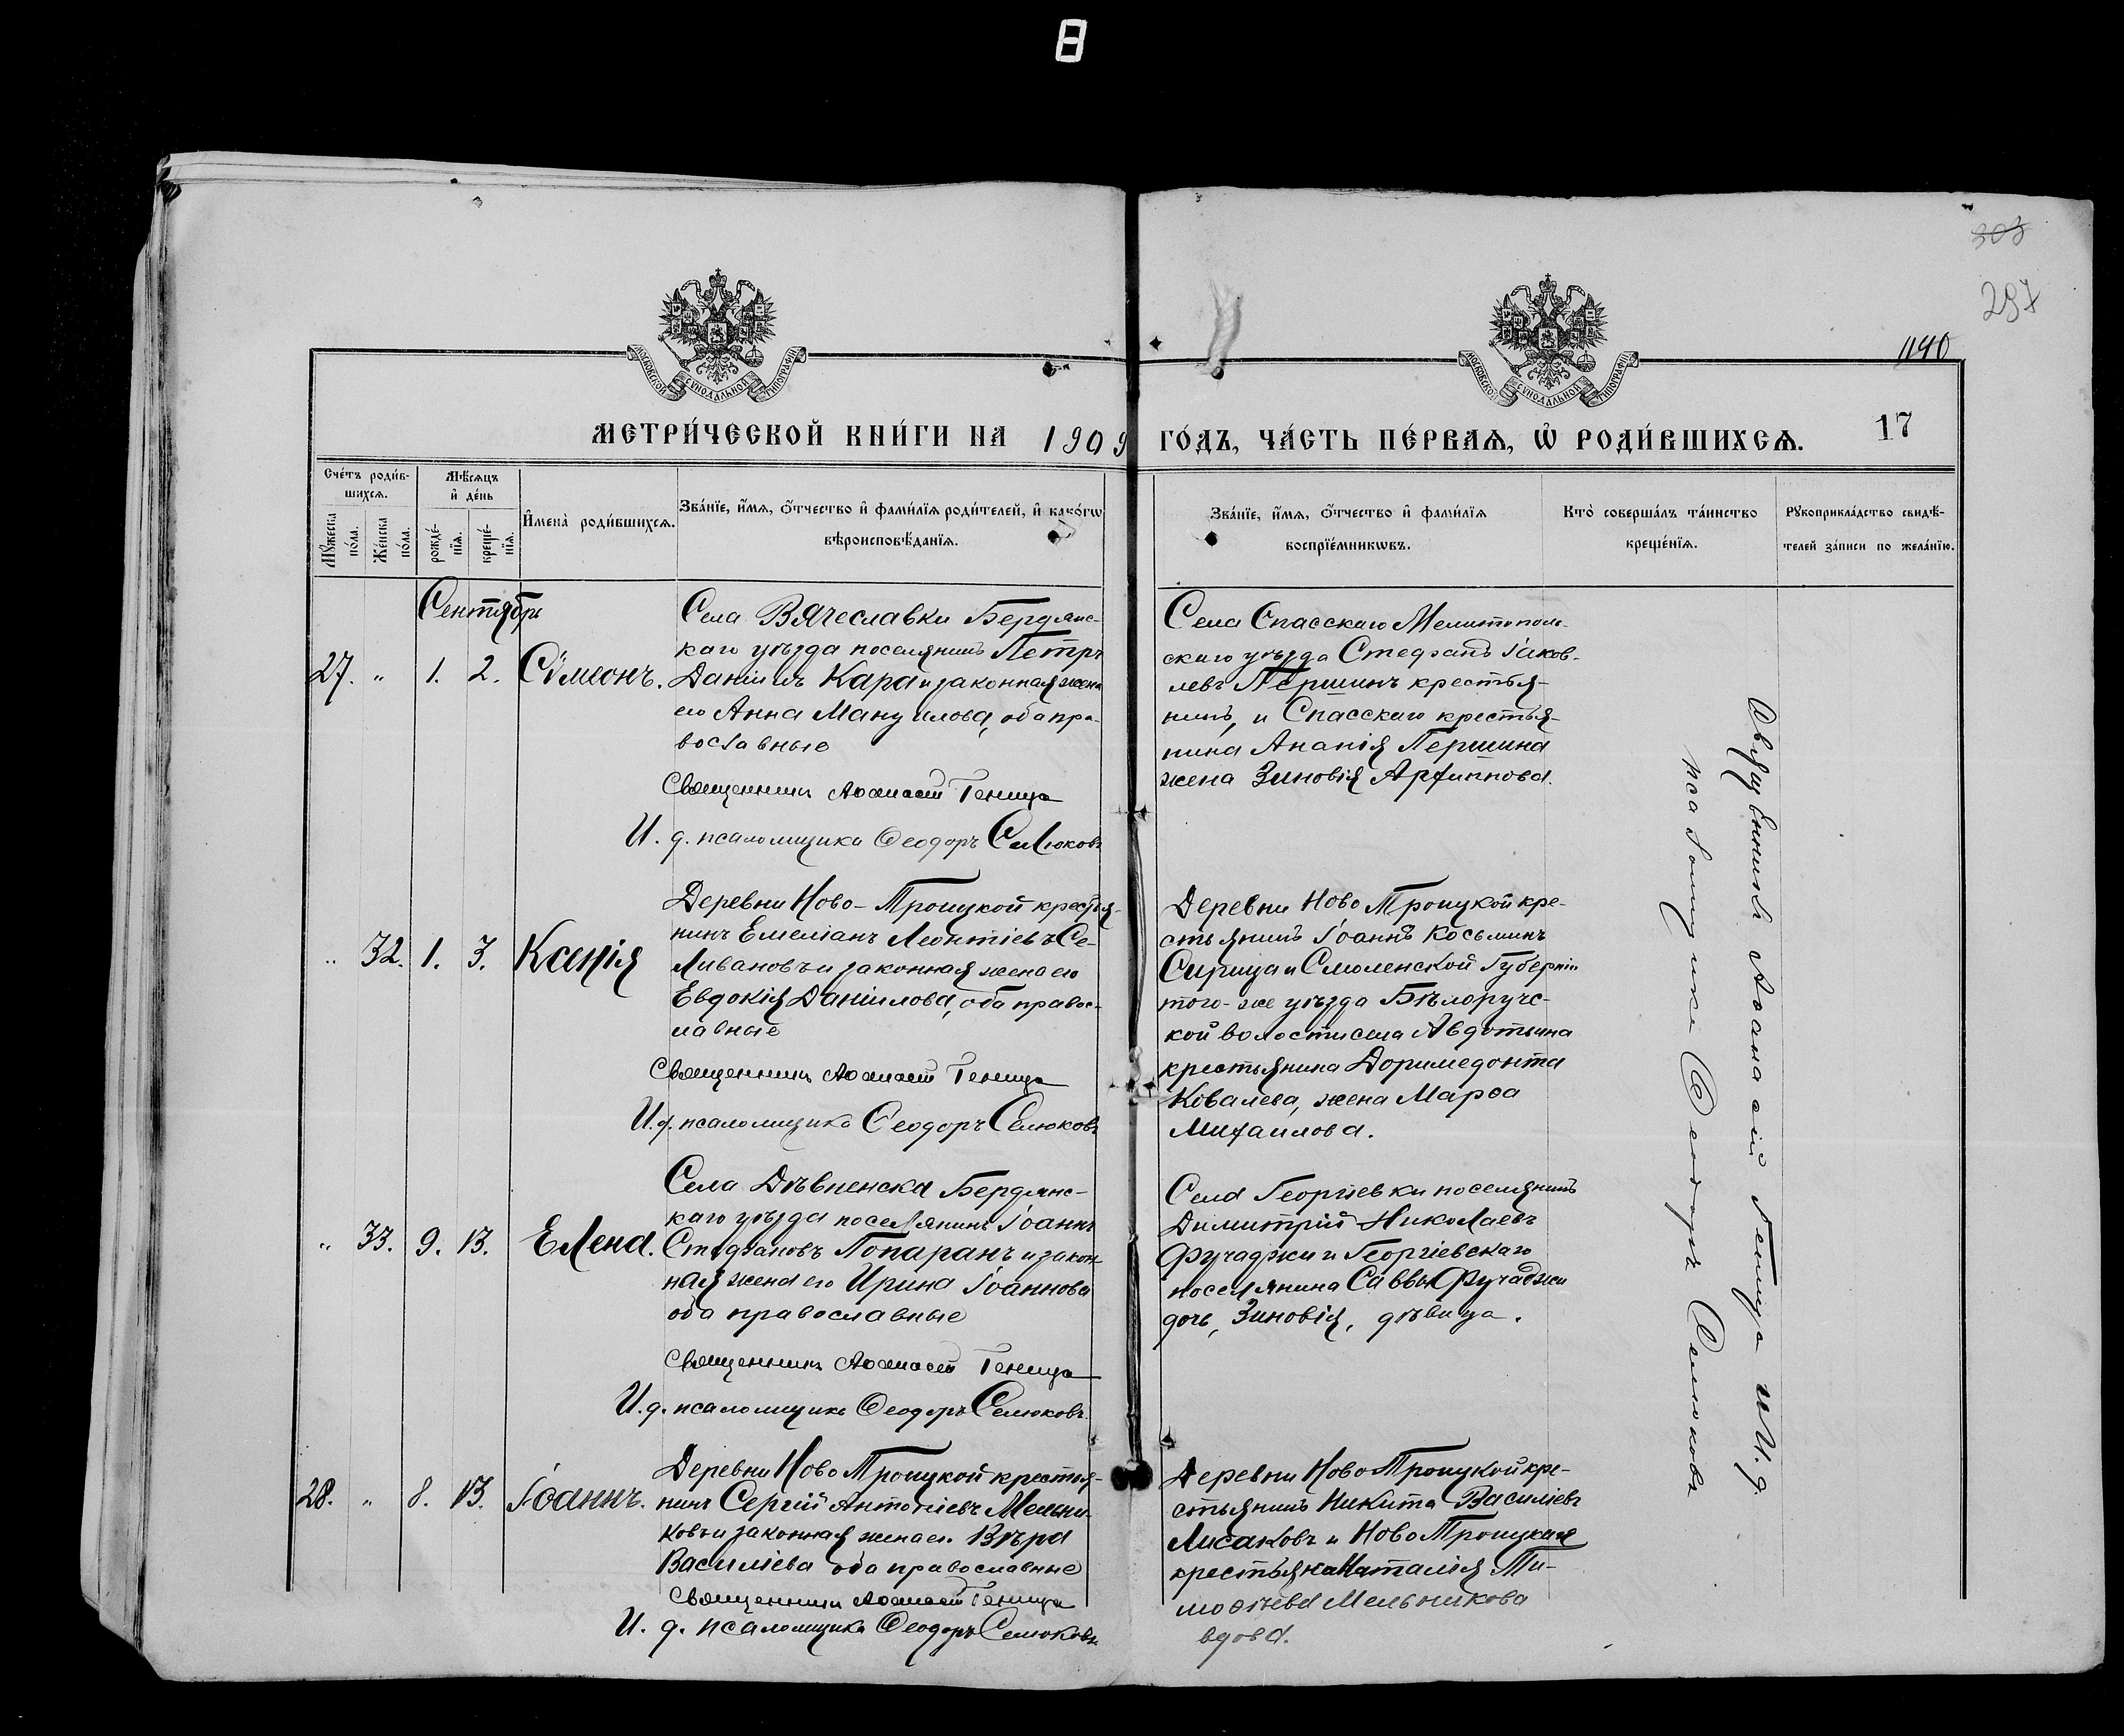 303
297
1140
МОСКОВСКОЙ СУНОДАЛЬНОЙ ТИПОГРАФІИ
МОСКОВСКОЙ СУНОДАЛЬНОЙ ТИПОГРАФІИ
МЕТРИ́ЧЕСКОЙ КНИ́ГИ НА 1909 ГО́ДЪ, ЧА́СТЬ ПЕ́РВАѦ, Ѡ҆ РОДИ́ВШИХСѦ.
17
Сче́тъ роди́в-
шихсѧ.
Мꙋжеска по́ла.
Же́нска по́ла.
Мѣ́сѧцъ
и҆ де́нь
рожде́-
нїѧ.
креще́-
нїѧ.
И҆мена̀ роди́вшихсѧ.
Зва́нїе, и҆́мѧ, ѻ҆́тчество и҆ фами́лїѧ роди́телей, и҆ како́гѡ
вѣроисповѣ́данїѧ.
Зва́нїе, и҆́мѧ, ѻ҆́тчество и҆ фами́лїѧ
воспрїе́мникѡвъ.
Кто̀ соверша́лъ та́инство
креще́нїѧ.
Рꙋкоприкла́дство свидѣ́-
телей за́писи по жела́нїю.
Сентябрь
27. " 1. 2. Сѵмеонъ.
Села Вячеславки Бердянс-
каго уѣзда поселянинъ Петръ
Даніилъ Кара и законная жена
его Анна Мануилова, оба пра-
вославные
Священникъ Аѳанасій Геница
И. д. псаломщика Ѳеодоръ Селюковъ
Села Спасскаго Мелитополь-
скаго уѣзда Стефанъ Іаков-
левъ Першинъ крестья-
нинъ, и Спасскаго крестья-
нина Ананія Першина
жена Зиновія Архиппова.
" 32. 1. 3. Ксенія
Деревни Ново-Троицкой крестья-
нинъ Емеліанъ Леонтіевъ Се-
ливановъ и законная жена его
Евдокія Даніилова, оба правос-
лавные
Священникъ Аѳанасій Геница
И. д. псаломщика Ѳеодоръ Селюковъ
Деревни Ново Троицкой кре-
стьянинъ Іоаннъ Косьминъ
Сирица и Смоленской Губерніи
того-же уѣзда Бѣлоручс-
кой волости села Авдотьина
крестьянина Доримедонта
Ковалева, жена Марѳа
Михаилова.
" 33. 9. 13. Елена.
Села Дѣвненска Бердянс-
каго уѣзда поселянинъ Іоаннъ
Стефановъ Попаранъ и закон-
ная жена его Ирина Іоаннова
оба православные
Священникъ Аѳанасій Геница
И. д. псаломщика Ѳеодоръ Селюковъ
Села Георгіевки поселянинъ
Димитрій Николаевъ
Фучаджи и Георгіевскаго
поселянина Саввы Фучаджи
дочь, Зиновія, дѣвица.
28. " 8. 13. Іоаннъ.
Деревни Ново Троицкой крестья-
нинъ Сергій Антоніевъ Мельни-
ковъ и законная жена его Вѣра
Василіева оба православные
Священникъ Аѳанасій Геница
И. д. псаломщика Ѳеодоръ Селюковъ
Деревни Ново Троицкой кре-
стьянинъ Никита Василіевъ
Лисаковъ и Ново Троицкая
крестьянка Наталія Ти-
моѳѣева Мельникова
вдова.
Священникъ Аѳанасій Геница и И. д.
псаломщика Ѳеодоръ Селюковъ